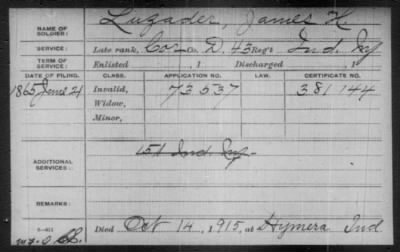 NAME OF SOLDIER: Luzader, James H
SERVICE: Late rank, Cor Co. D, 43 Reg't Ind. Inf
TERM OF SERVICE: Enlisted , 1 Discharged , 1
DATE OF FILING. CLASS. APPLICATION NO. LAW. CERTIFICATE NO.
1865 June 21 Invalid, 73537 381144
Widow,
Minor,
ADDITIONAL SERVICES: 151 Ind. Inf
REMARKS:
Died Oct 14, 1915, at Hymera Ind